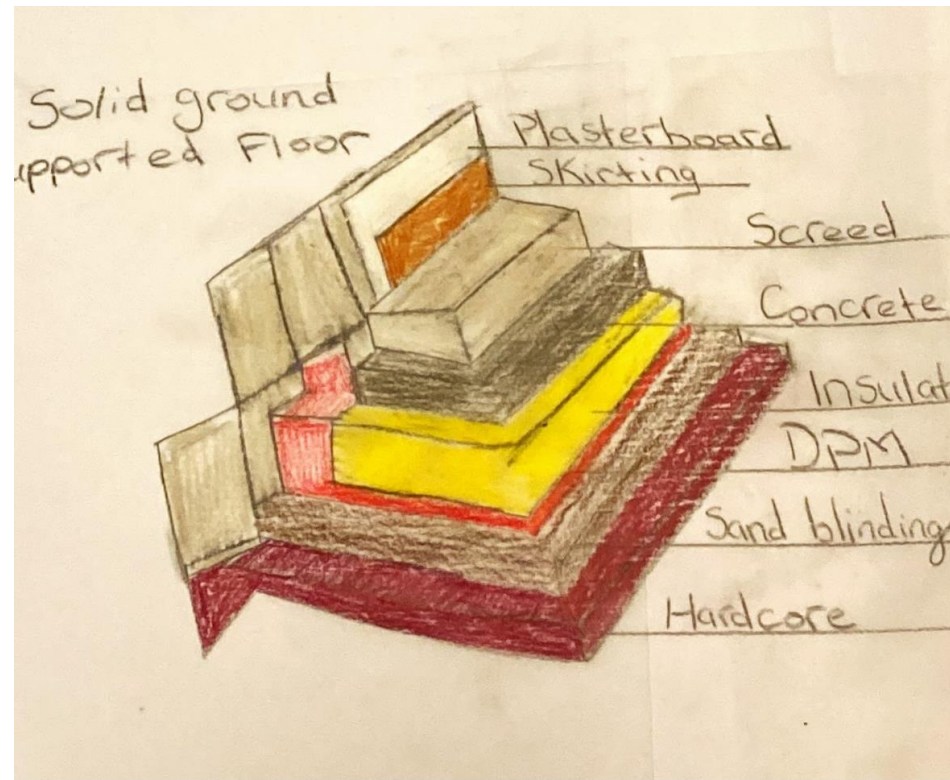 Solid ground
upported Floor
Plasterboard
Skirting
Screed
Concrete
Insulat
DPM
Sand blinding
Hardcore